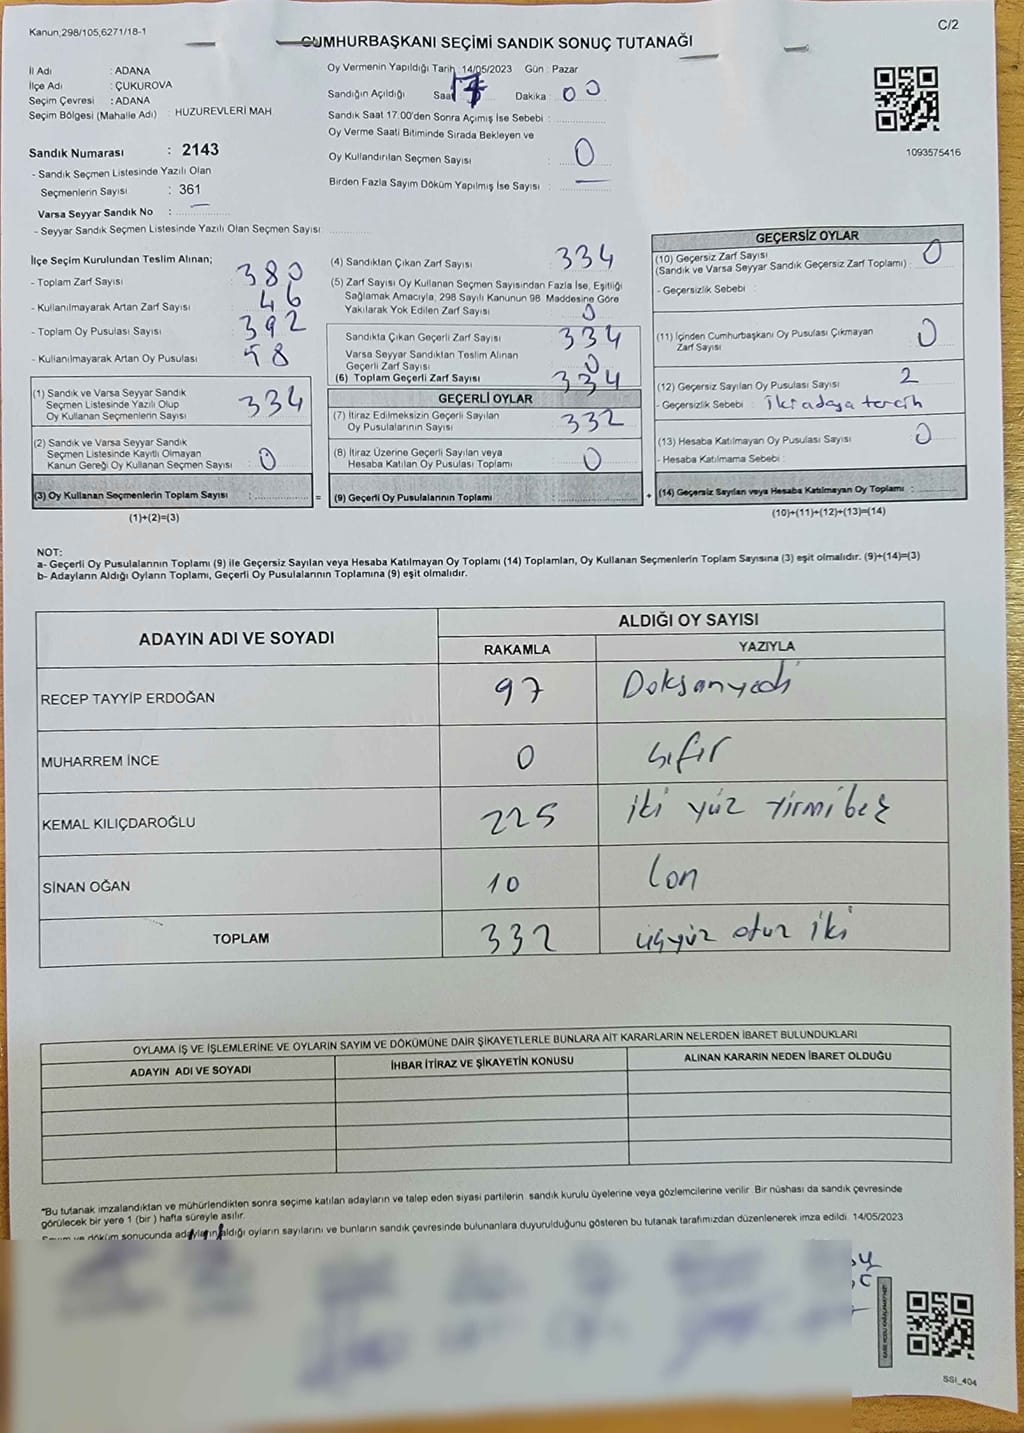 Kanun,298/105,6271/18-1
C/2
CUMHURBAŞKANI SEÇİMİ SANDIK SONUÇ TUTANAĞI
İl Adı : ADANA
İlçe Adı : ÇUKUROVA
Seçim Çevresi : ADANA
Seçim Bölgesi (Mahalle Adı) : HUZUREVLERİ MAH
Sandık Numarası : 2143
- Sandık Seçmen Listesinde Yazılı Olan
Seçmenlerin Sayısı : 361
Varsa Seyyar Sandık No :
- Seyyar Sandık Seçmen Listesinde Yazılı Olan Seçmen Sayısı:
Oy Vermenin Yapıldığı Tarih : 14/05/2023 Gün : Pazar
Sandığın Açıldığı Saat 17 Dakika : 00
Sandık Saat 17:00'den Sonra Açımış İse Sebebi :
Oy Verme Saati Bitiminde Sırada Bekleyen ve
Oy Kullandırılan Seçmen Sayısı : 0
Birden Fazla Sayım Döküm Yapılmış İse Sayısı : —
1093575416
İlçe Seçim Kurulundan Teslim Alınan;
- Toplam Zarf Sayısı : 380
- Kullanılmayarak Artan Zarf Sayısı : 46
- Toplam Oy Pusulası Sayısı : 392
- Kullanılmayarak Artan Oy Pusulası : 58
(1) Sandık ve Varsa Seyyar Sandık
Seçmen Listesinde Yazılı Olup
Oy Kullanan Seçmenlerin Sayısı : 334
(2) Sandık ve Varsa Seyyar Sandık
Seçmen Listesinde Kayıtlı Olmayan
Kanun Gereği Oy Kullanan Seçmen Sayısı : 0
(3) Oy Kullanan Seçmenlerin Toplam Sayısı : =
(1)+(2)=(3)
(4) Sandıktan Çıkan Zarf Sayısı : 334
(5) Zarf Sayısı Oy Kullanan Seçmen Sayısından Fazla İse, Eşitliği
Sağlamak Amacıyla, 298 Sayılı Kanunun 98 Maddesine Göre
Yakılarak Yok Edilen Zarf Sayısı : 0
Sandıkta Çıkan Geçerli Zarf Sayısı : 334
Varsa Seyyar Sandıktan Teslim Alınan
Geçerli Zarf Sayısı : 0
(6) Toplam Geçerli Zarf Sayısı : 334
GEÇERLİ OYLAR
(7) İtiraz Edilmeksizin Geçerli Sayılan
Oy Pusulalarının Sayısı : 332
(8) İtiraz Üzerine Geçerli Sayılan veya
Hesaba Katılan Oy Pusulası Toplamı : 0
(9) Geçerli Oy Pusulalarının Toplamı : +
GEÇERSİZ OYLAR
(10) Geçersiz Zarf Sayısı
(Sandık ve Varsa Seyyar Sandık Geçersiz Zarf Toplamı) : 0
- Geçersizlik Sebebi :
(11) İçinden Cumhurbaşkanı Oy Pusulası Çıkmayan
Zarf Sayısı : 0
(12) Geçersiz Sayılan Oy Pusulası Sayısı : 2
- Geçersizlik Sebebi : İki adaya tercih
(13) Hesaba Katılmayan Oy Pusulası Sayısı : 0
- Hesaba Katılmama Sebebi :
(14) Geçersiz Sayılan veya Hesaba Katılmayan Oy Toplamı :
(10)+(11)+(12)+(13)=(14)
NOT:
a- Geçerli Oy Pusulalarının Toplamı (9) ile Geçersiz Sayılan veya Hesaba Katılmayan Oy Toplamı (14) Toplamları, Oy Kullanan Seçmenlerin Toplam Sayısına (3) eşit olmalıdır. (9)+(14)=(3)
b- Adayların Aldığı Oyların Toplamı, Geçerli Oy Pusulalarının Toplamına (9) eşit olmalıdır.
ADAYIN ADI VE SOYADI
ALDIĞI OY SAYISI
RAKAMLA YAZIYLA
RECEP TAYYİP ERDOĞAN 97 Doksanyedi
MUHARREM İNCE 0 sıfır
KEMAL KILIÇDAROĞLU 225 iki yüz yirmibeş
SİNAN OĞAN 10 on
TOPLAM 332 üçyüz otuz iki
OYLAMA İŞ VE İŞLEMLERİNE VE OYLARIN SAYIM VE DÖKÜMÜNE DAİR ŞİKAYETLERLE BUNLARA AİT KARARLARIN NELERDEN İBARET BULUNDUKLARI
ADAYIN ADI VE SOYADI İHBAR İTİRAZ VE ŞİKAYETİN KONUSU ALINAN KARARIN NEDEN İBARET OLDUĞU
*Bu tutanak imzalandıktan ve mühürlendikten sonra seçime katılan adayların ve talep eden siyasi partilerin sandık kurulu üyelerine veya gözlemcilerine verilir Bir nüshası da sandık çevresinde
görülecek bir yere 1 (bir ) hafta süreyle asılır.
Sayım ve döküm sonucunda adayların aldığı oyların sayılarını ve bunların sandık çevresinde bulunanlara duyurulduğunu gösteren bu tutanak tarafımızdan düzenlenerek imza edildi. 14/05/2023
SSI_404